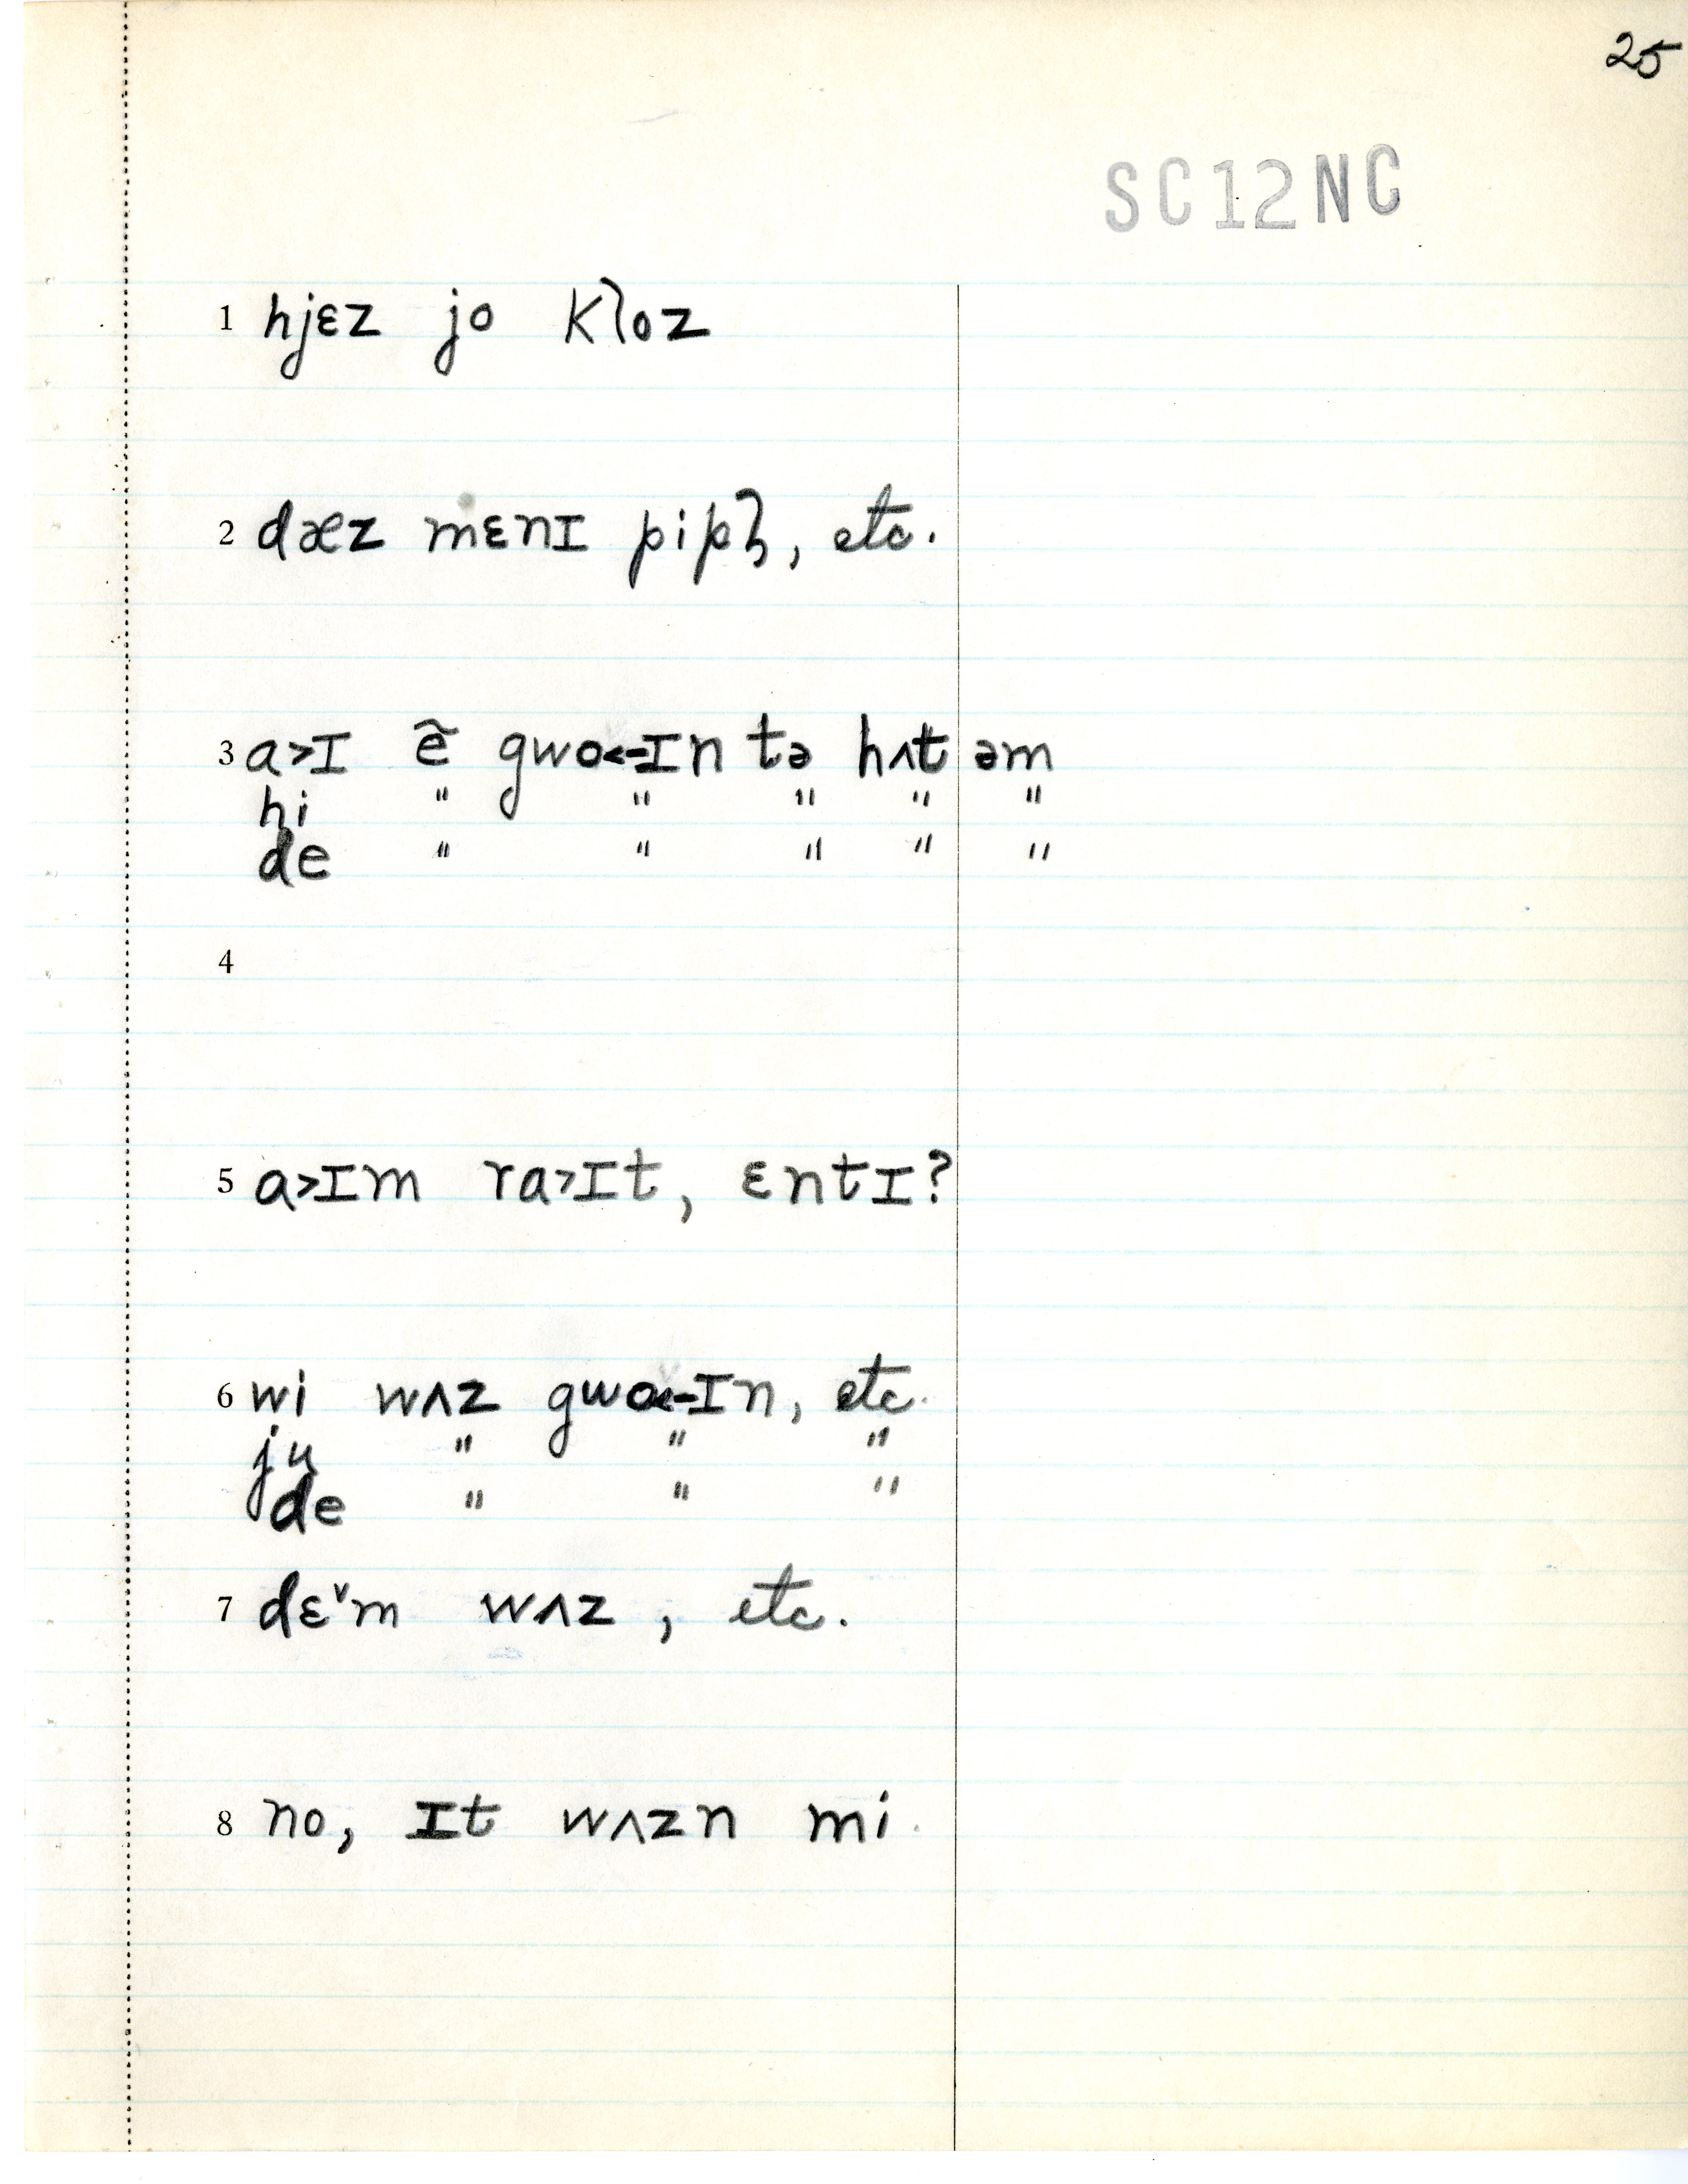 25
SC12NC
1 hjɛz jo kloz
2 dæz mɛnɪ pipl̩, etc.
3 a>ɪ ẽ gwo<-ɪn tə hʌt əm
hi " " " " "
de " " " " "
4
5 a>ɪm ra>ɪt, ɛntɪ?
6 wi wʌz gwɑ<-ɪn, etc.
ju " " "
de " " "
7 dɛˇm wʌz, etc.
8 no, ɪt wʌzn mi.